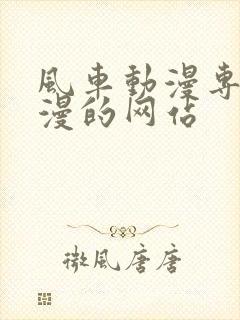 風車動漫專
漫的网站
微風唐唐